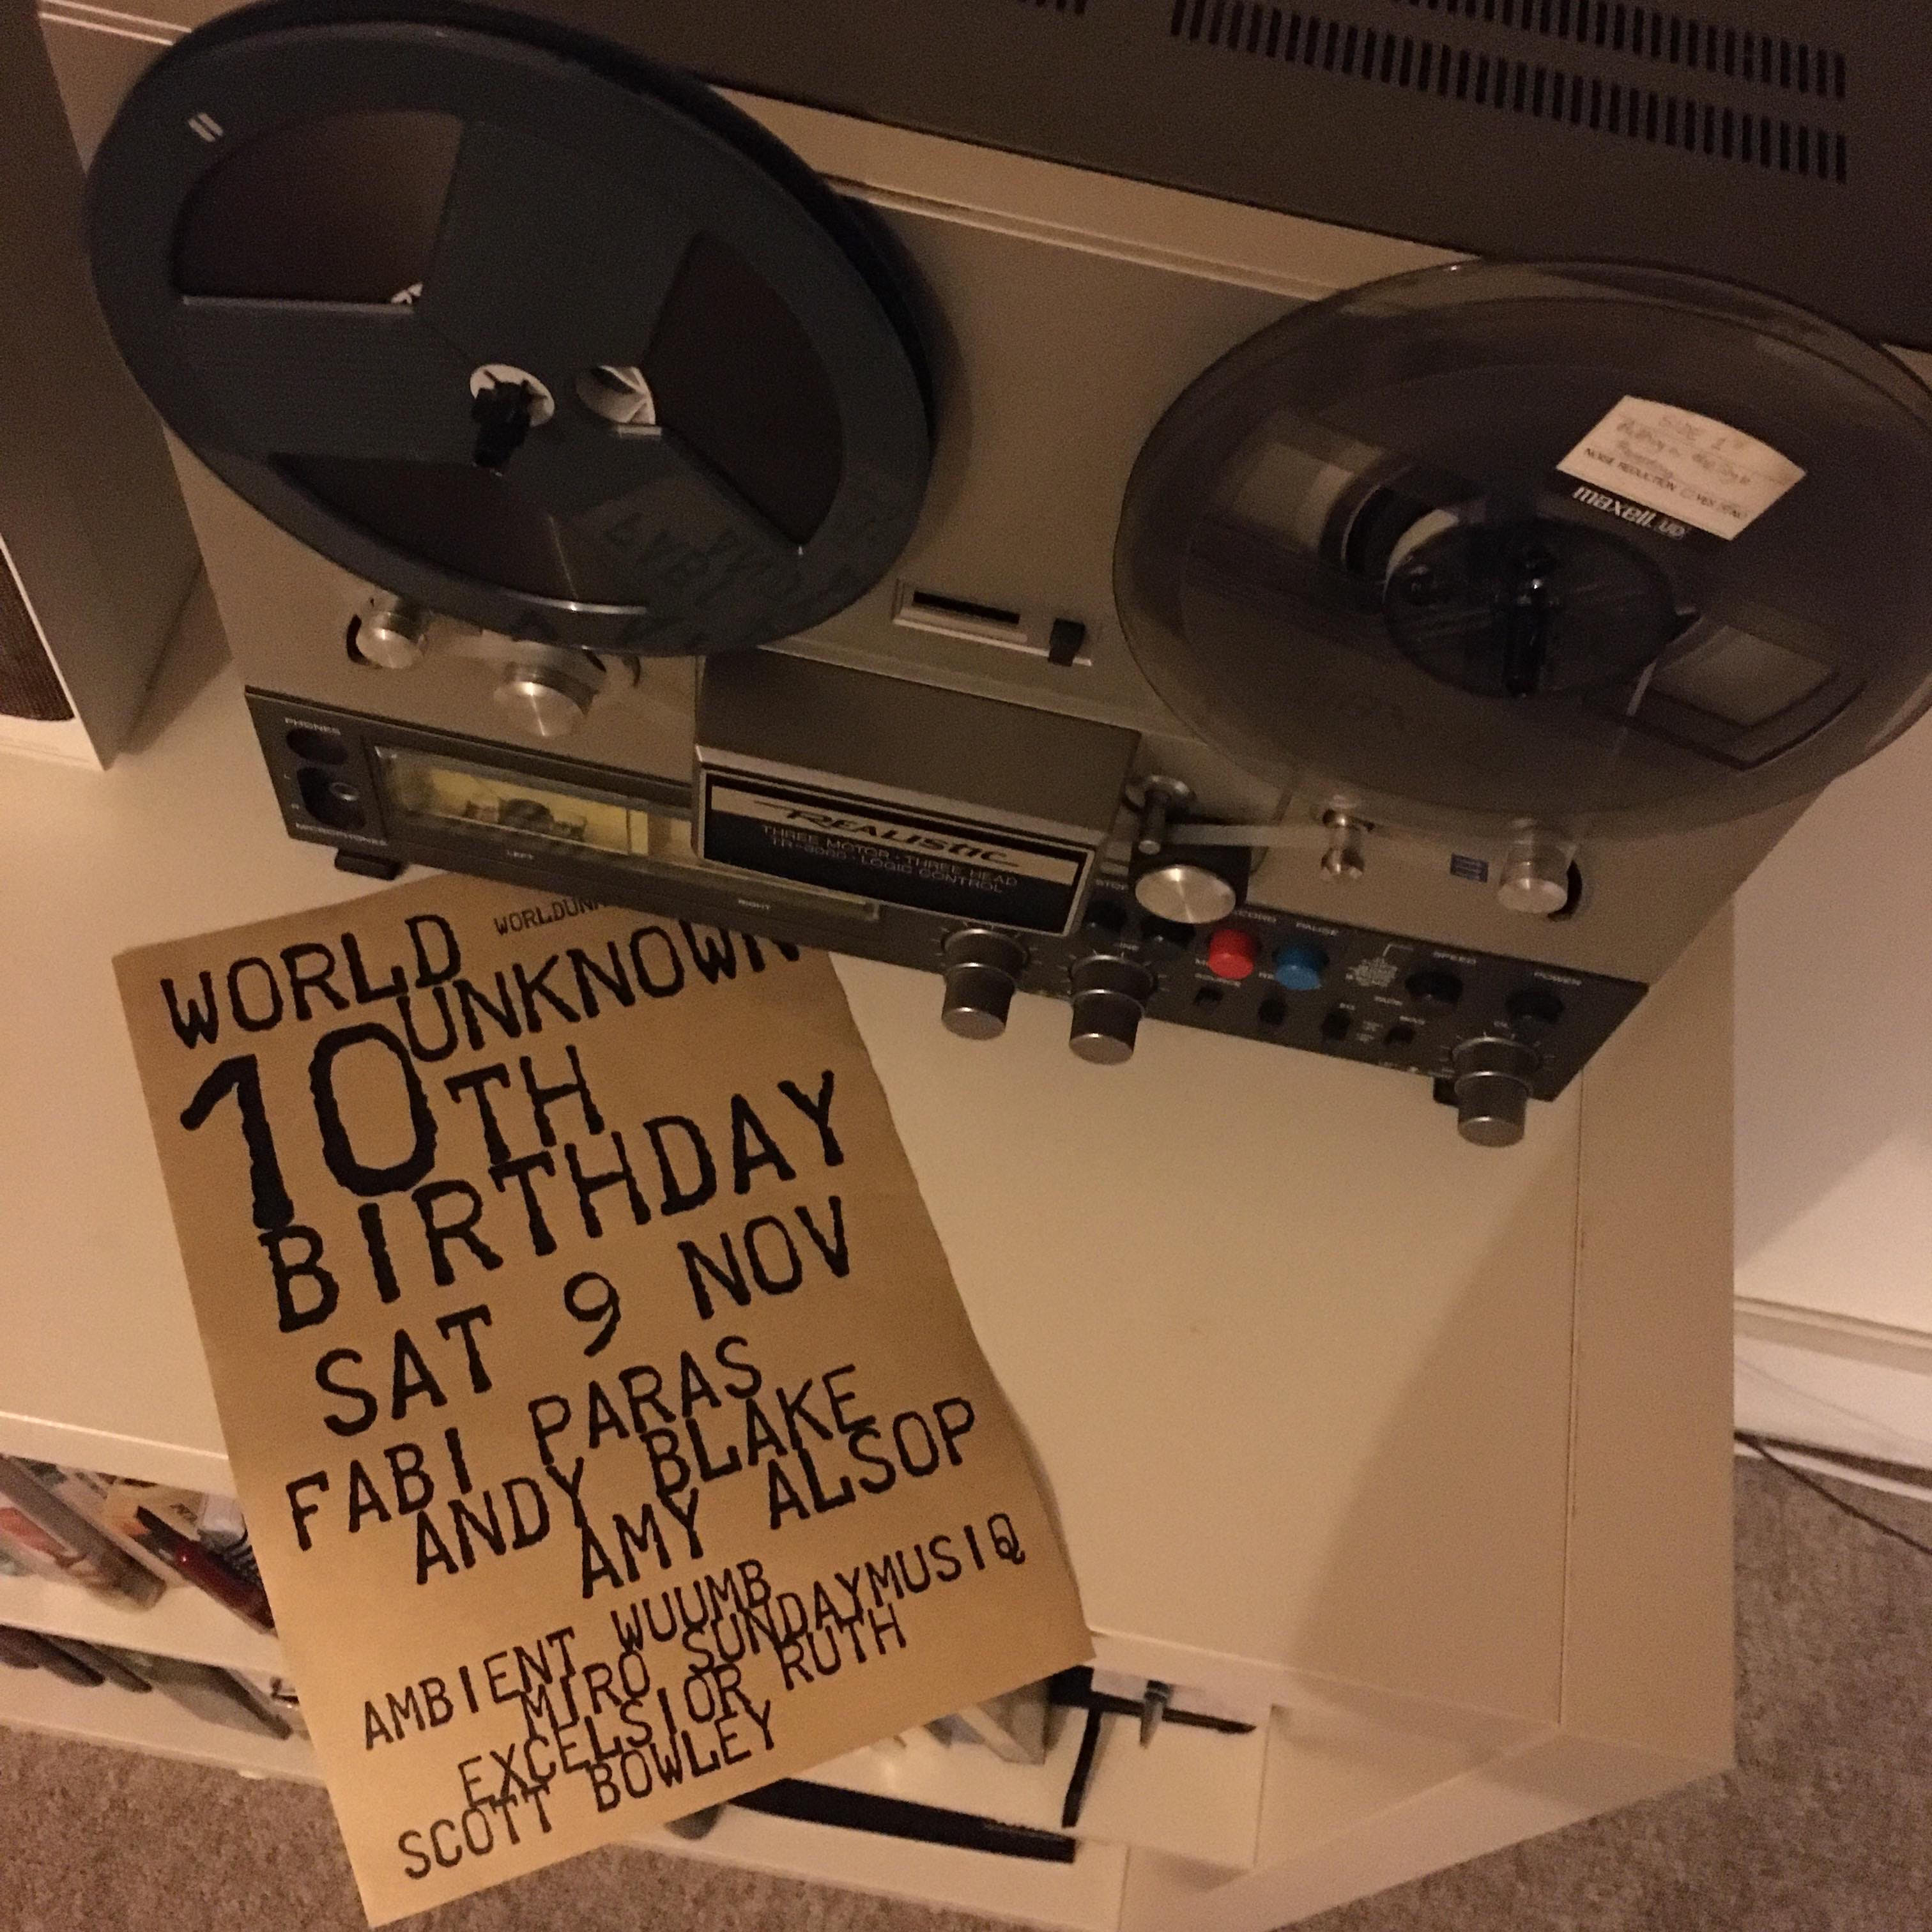 SIDE 1
NOISE REDUCTION
maxell UD
PHONES
LEFT
RIGHT
REALISTIC
THREE MOTOR · THREE HEAD
TR-3000 · LOGIC CONTROL
PAUSE
SPEED
POWER
WORLD
UNKNOWN
10TH
BIRTHDAY
SAT 9 NOV
FABI PARAS
ANDY BLAKE
AMY ALSOP
AMBIENT WUUMB
MIRO SUNDAYMUSIQ
EXCELSIOR RUTH
SCOTT BOWLEY